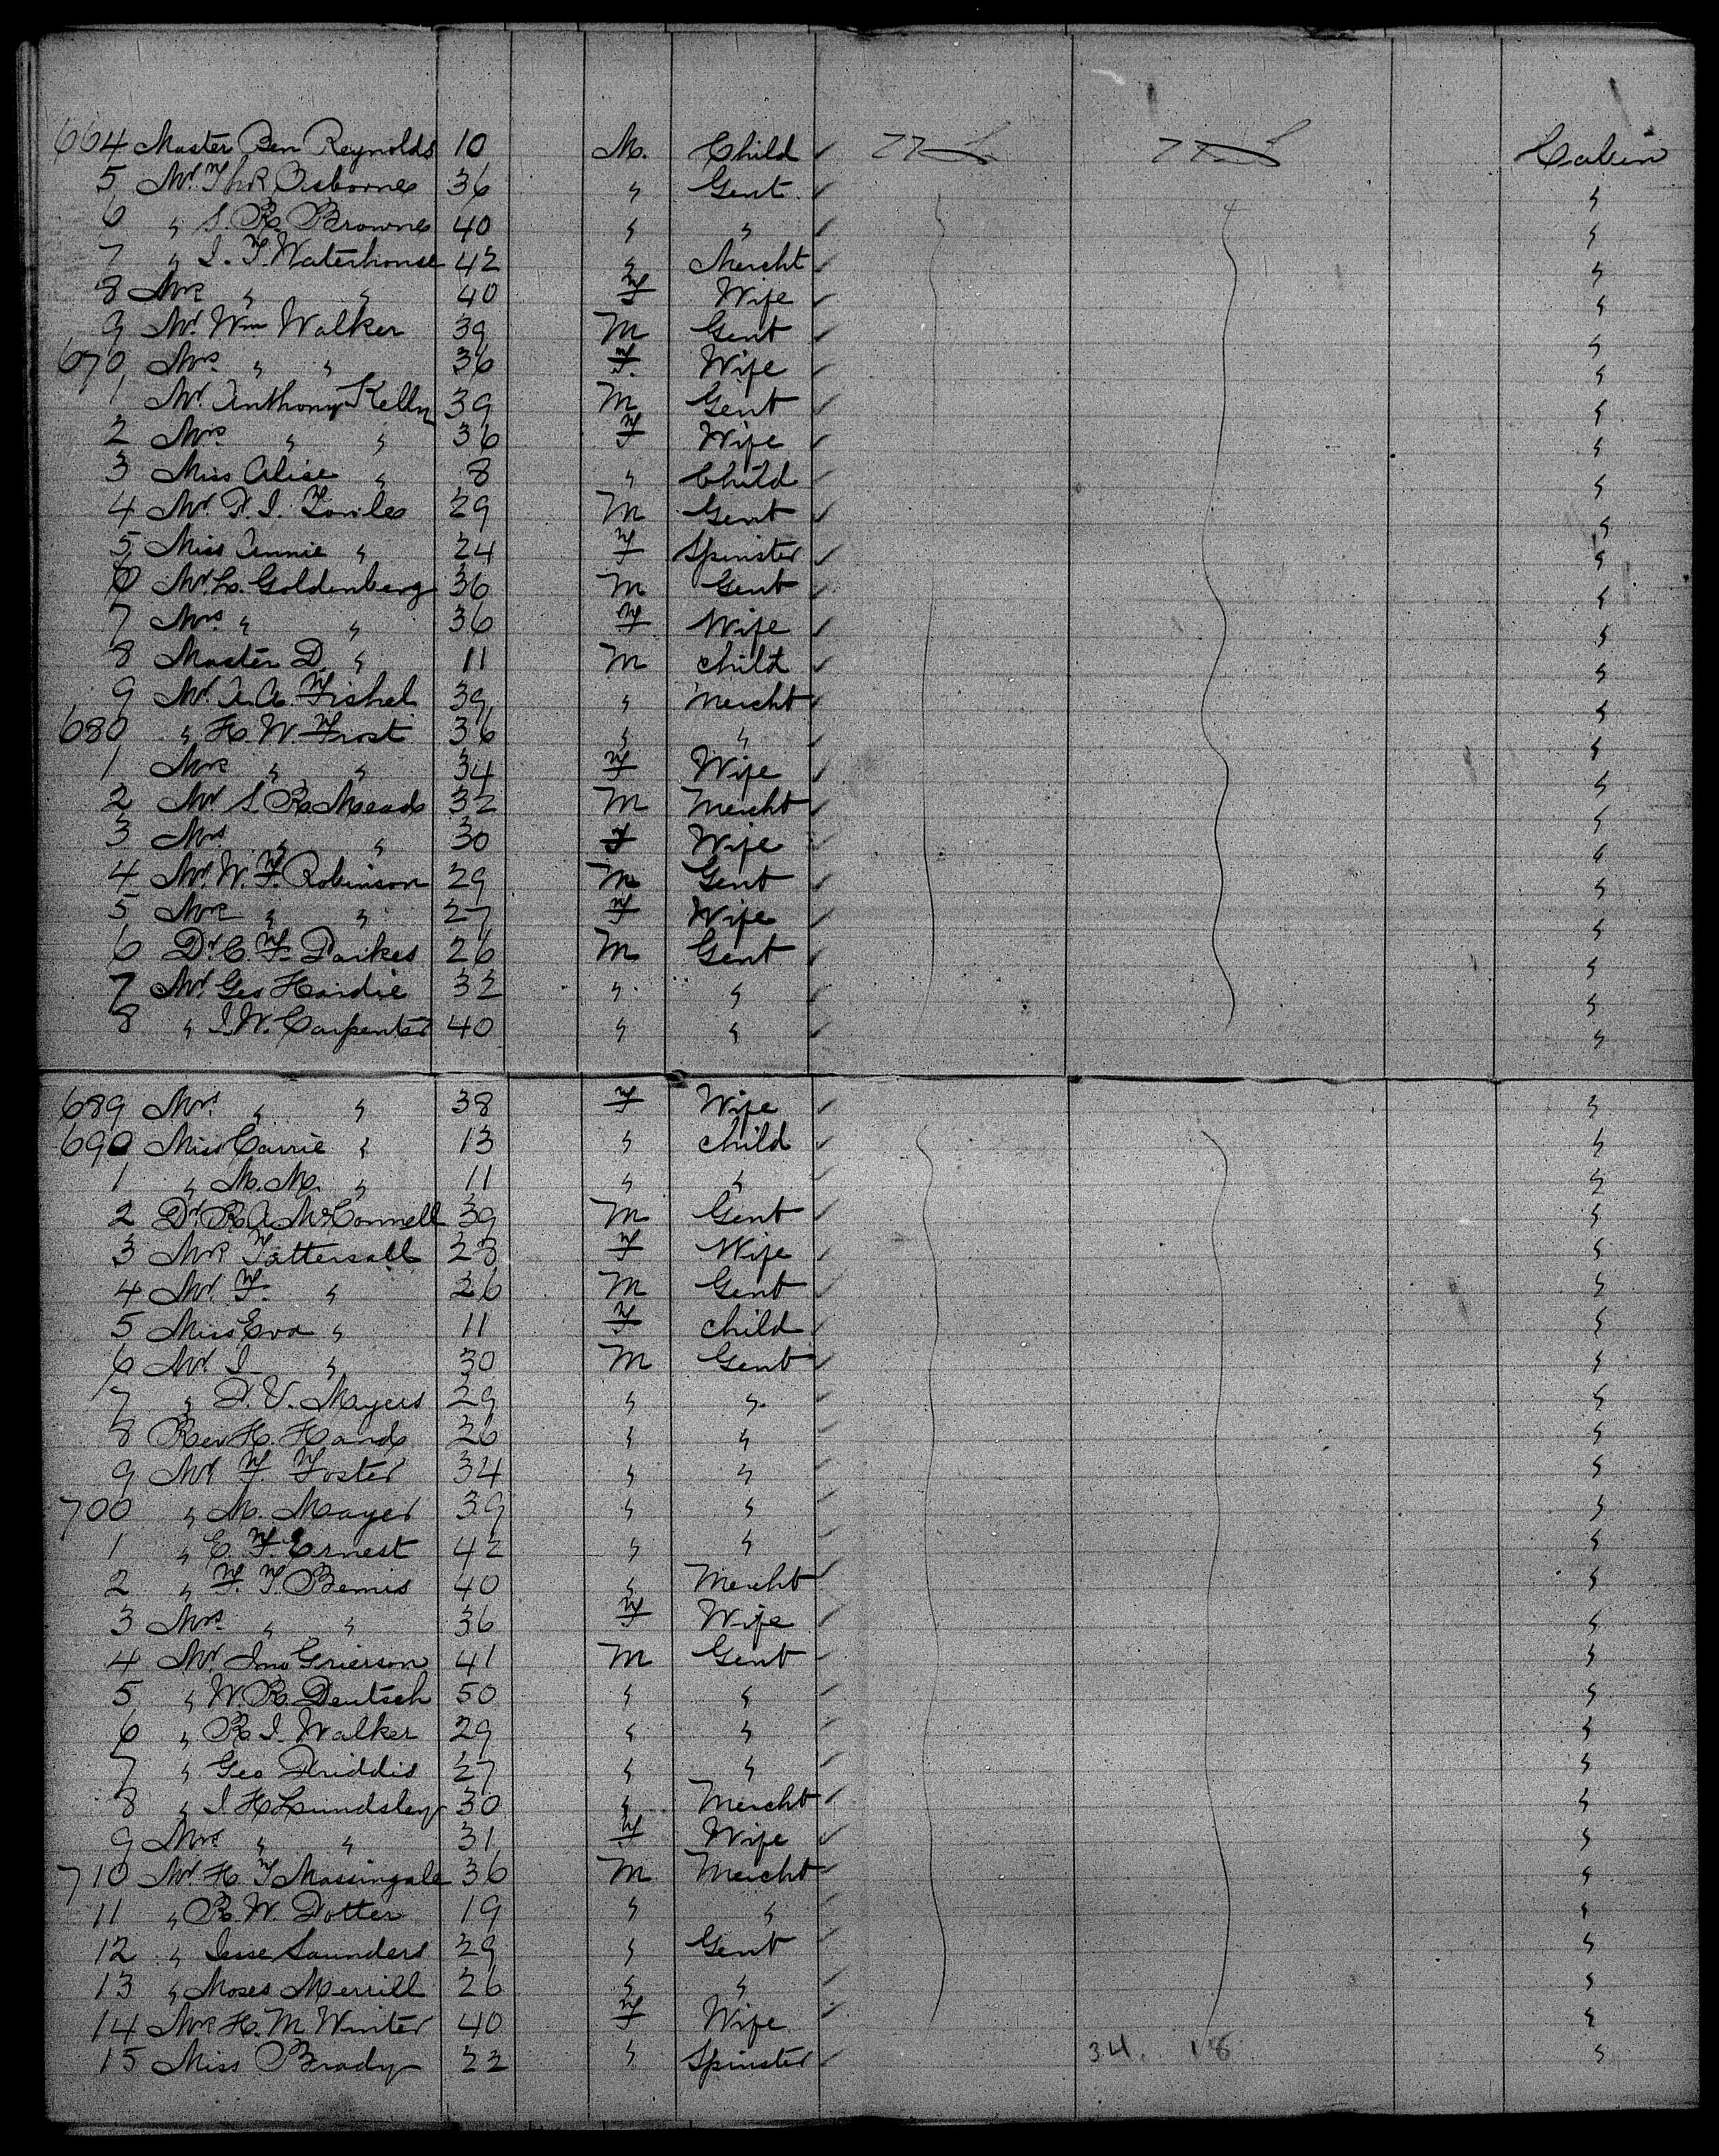 664 Master Ben Reynolds 10 M. Child ✓ U S U S Cabin
5 Mr. Thos Osborne 36 " Gent. ✓ "
6 " S. R. Browne 40 " " ✓ "
7 " J. T. Waterhouse 42 " Mercht ✓ "
8 Mrs " " 40 F Wife ✓ "
9 Mr. Wm Walker 39 M Gent ✓ "
670 Mrs. " " 36 F. Wife ✓ "
1 Mr. Anthony Kelly 39 M Gent ✓ "
2 Mrs " " 36 F Wife ✓ "
3 Miss Alise " 8 " Child ✓ "
4 Mr. P. I. 29 M Gent ✓ "
5 Miss Annie " 24 F Spinster ✓ "
6 Mr. L. Goldenberg 36 M Gent ✓ "
7 Mrs " " 36 F Wife ✓ "
8 Master D. " 11 M child ✓ "
9 Mr. A. A. Fishel 39 " Mercht ✓ "
680 " H. W. Frost 36 " " ✓ "
1 Mrs " " 34 F Wife ✓ "
2 Mr S. R. Mead 32 M Mercht ✓ "
3 Mrs " " 30 F Wife ✓ "
4 Mr. W. F. Robinson 29 M Gent ✓ "
5 Mrs " " 27 F Wife ✓ "
6 Dr. C. F. Parkes 26 M Gent ✓ "
7 Mr. Geo Hardie 32 " " ✓ "
8 " J. W. Carpenter 40 " " ✓ "
689 Mrs. " " 38 F Wife ✓ "
690 Miss Carrie " 13 " child ✓ "
1 " M. M. " 11 " " ✓ "
2 Dr. R. A. McConnell 39 M Gent ✓ "
3 Mrs Tattersall 28 F Wife ✓ "
4 Mr. F. " 26 M Gent ✓ "
5 Miss Eva " 11 F child ✓ "
6 Mr. J " 30 M Gent ✓ "
7 " P. V. Mayers 29 " " ✓ "
8 Rev H. Hand 26 " " ✓ "
9 Mr F. Foster 34 " " ✓ "
700 " M. Mayer 39 " " ✓ "
1 " E. F. Ernest 42 " " ✓ "
2 " F. T. Bemis 40 " Mercht ✓ "
3 Mrs " " 36 F Wife ✓ "
4 Mr. Jno Grierson 41 M Gent ✓ "
5 " W. R. Deutsch 50 " " ✓ "
6 " R. J. Walker 29 " " ✓ "
7 " Geo Priddis 27 " " ✓ "
8 " J. H. Lundsley 30 " Mercht ✓ "
9 Mrs. " " 31 F Wife ✓ "
710 Mr H. T. Massingale 36 M Mercht ✓ "
11 " R. W. Potter 19 " " ✓ "
12 " Jesse Saunders 29 " Gent ✓ "
13 " Moses Merrill 26 " " ✓ "
14 Mrs H. M. Winter 40 F Wife ✓ "
15 Miss Brady 22 " Spinster ✓ 34. 18 "